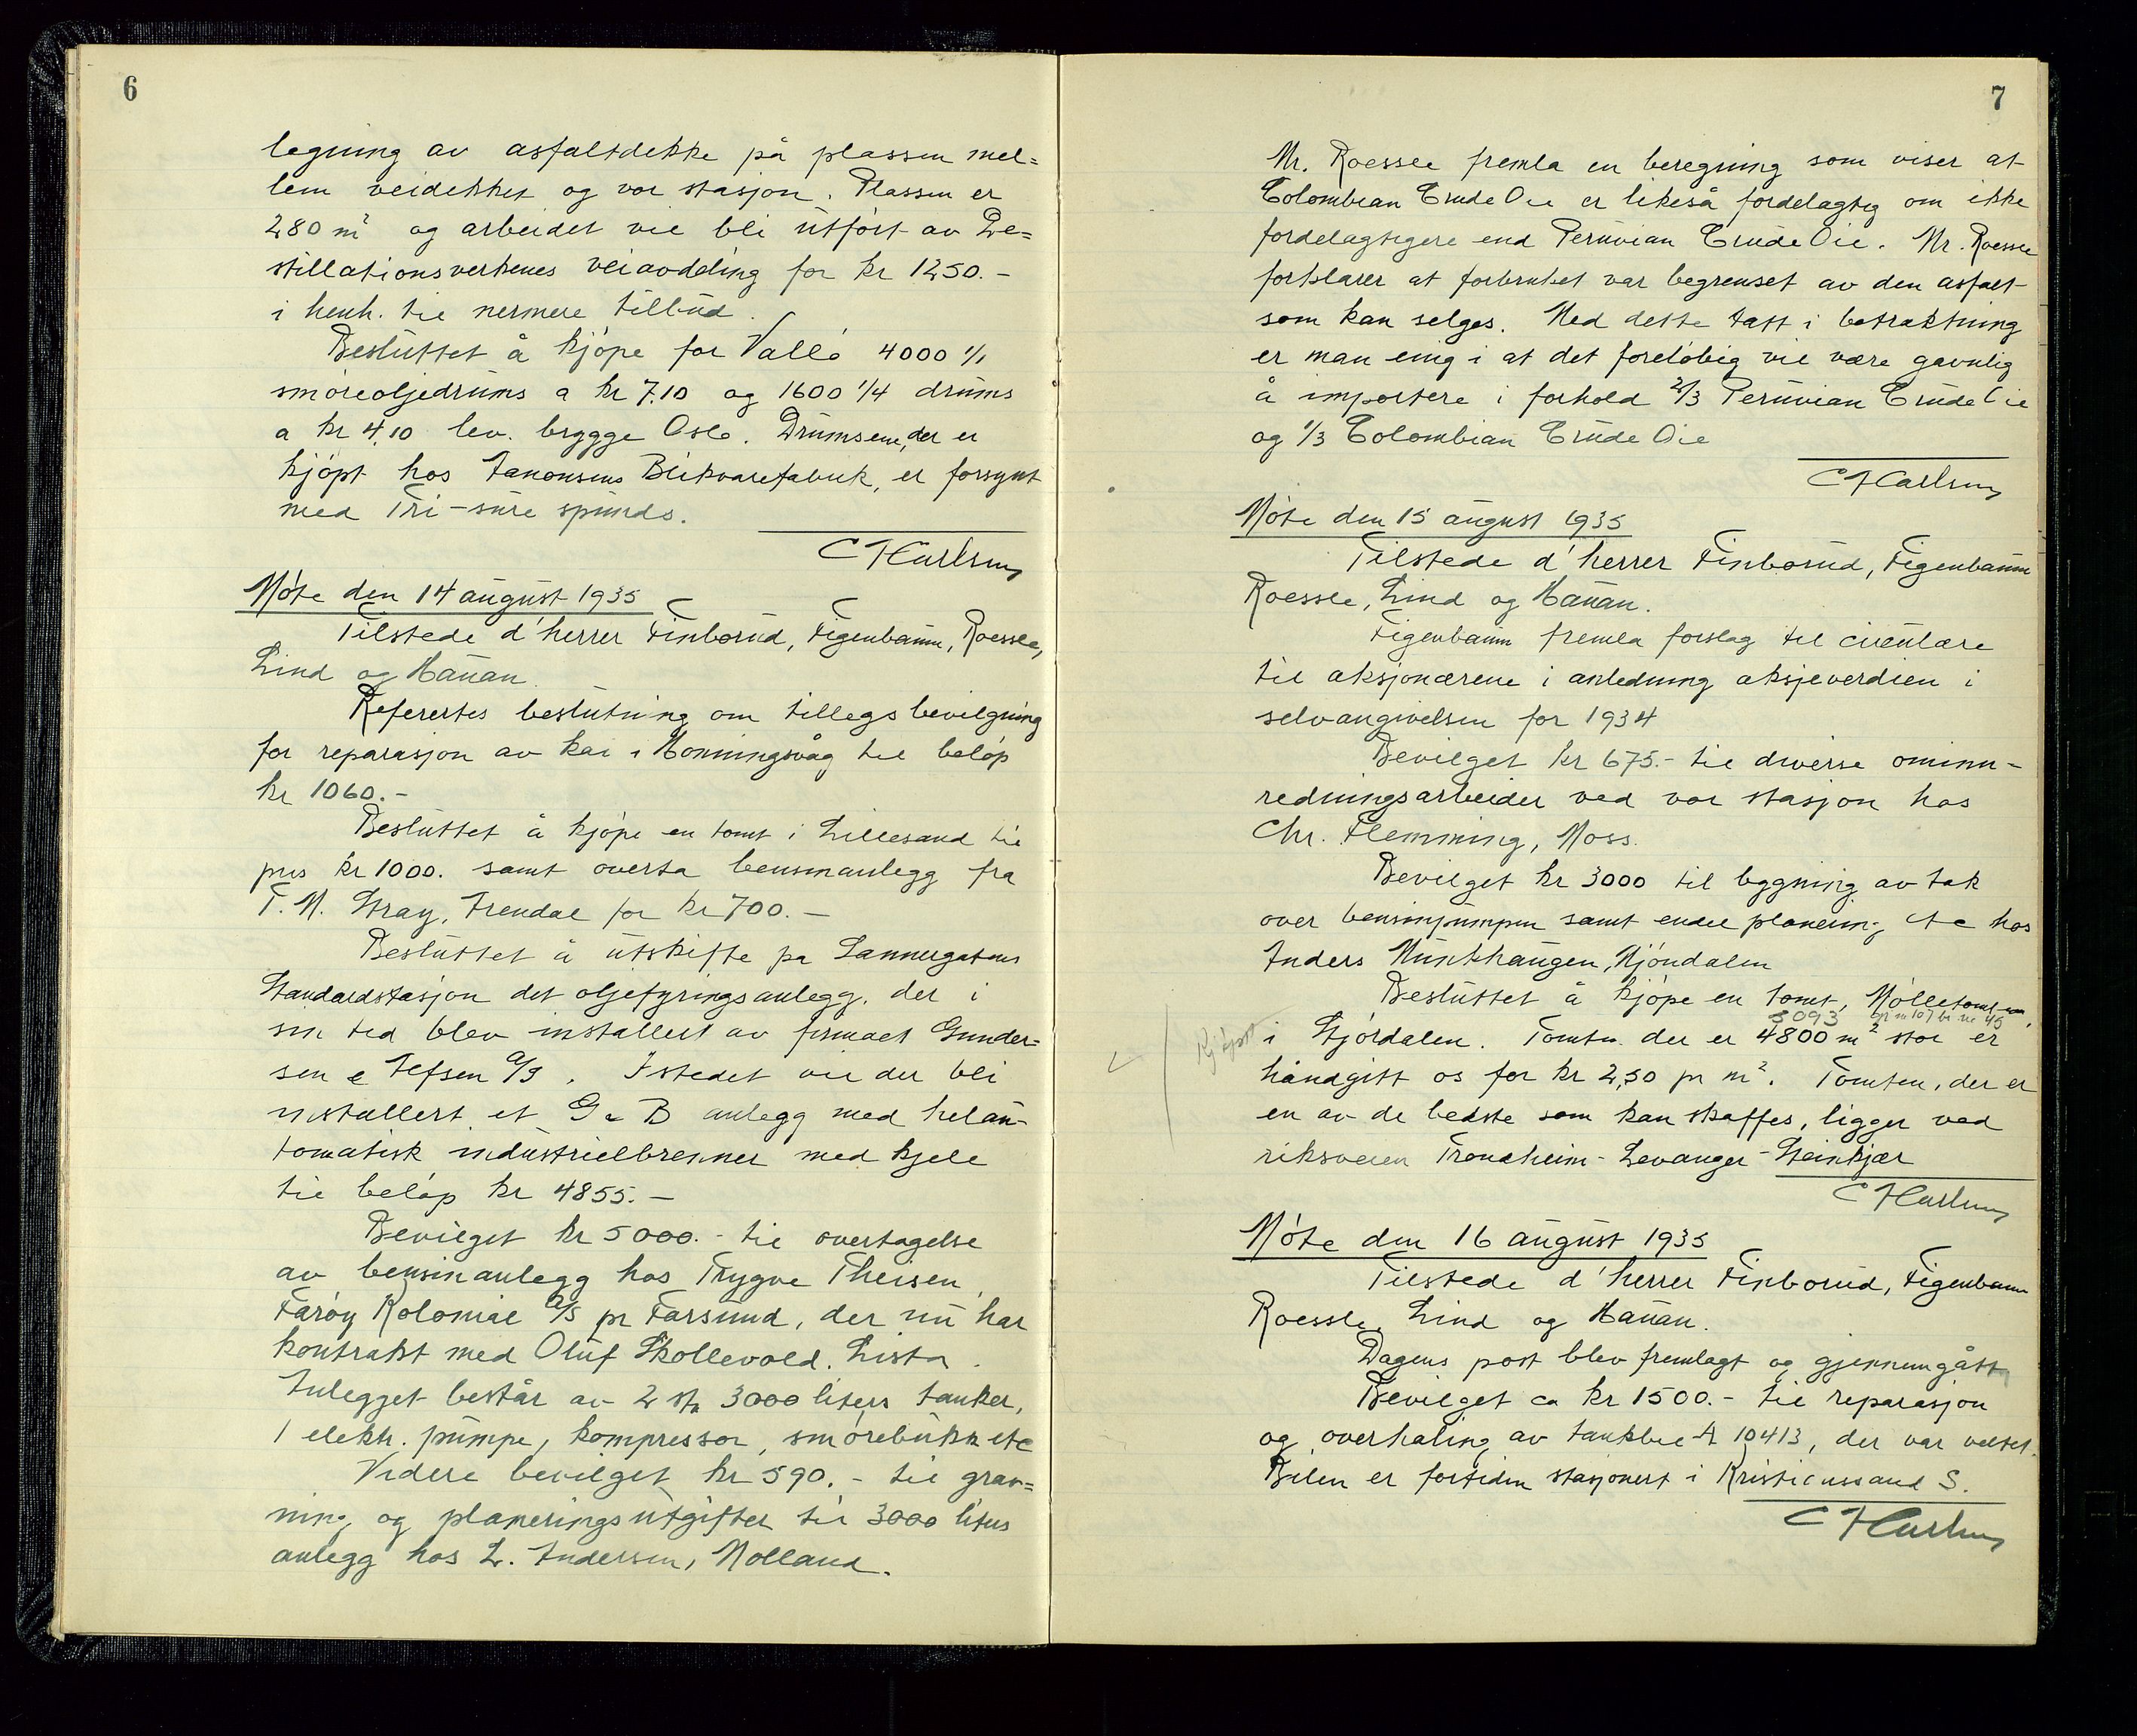 6
legning av asfaltdekke på plassen mel=
lem veidekket og vor stasjon. Plassen er
280 m² og arbeidet vil bli utført av De=
stillationsverkenes veiavdeling for kr 1250.-
i henh. til nermere tilbud.
Besluttet å kjøpe for Vallø 4000 1/1
smøreoljedrums a kr 7.10 og 1600 1/4 drums
a kr 4.10 lev. brygge Oslo. Drumsene, der er
kjøpt hos Aanonsens Blikvarefabrik, er forsynt
med Tri-sure spunds.
C F Carlsen
Møte den 14 august 1935
Tilstede d'herrer Finborud, Figenbaum, Roessle,
Lind og Hauan.
Refertes beslutning om tillegsbevilgning
for reparasjon av kai i Honningsvåg til beløp
kr 1060.-
Besluttet å kjøpe en tomt i Lillesand til
pris kr 1000. samt overta bensinanlegg fra
T. M. Stray, Arendal for kr 700.-
Besluttet å utskifte på Lammersgatens
Standardstasjon det oljefyringsanlegg, der i
sin tid blev installert av firmaet Gunder=
sen & Jefsen A/S. Istedet vil der bli
installert et G & B anlegg med helau-
tomatisk industrielbrenner med kjele
til beløp kr 4855.-
Bevilget kr 5000.- til overtagelse
av bensinanlegg hos Trygve Theisen,
Farøy Kolonial A/S pr Farsund, der nu har
kontrakt med Oluf Skollevold. Lista.
Anlegget består av 2 st 3000 liters tanker,
1 elektr. pumpe, kompressor, smørebukk etc
Videre bevilget kr 590.- til grav=
ning og planeringsutgifter til 3000 liters
anlegg hos L. Andersen, Molland.
7
Mr. Roessle fremla en beregning som viser at
Colombian Crude Oil er likeså fordelagtig om ikke
fordelagtigere end Peruvian Crude Oil. Mr. Roessle
forklarer at forbruket var begrenset av den asfalt
som kan selges. Med dette tatt i betraktning
er man enig i at det foreløbig vil være gavnlig
å importere i forhold 2/3 Peruvian Crude Oil
og 1/3 Colombian Crude Oil
C F Carlsen
Møte den 15 august 1935
Tilstede d'herrer Finborud, Figenbaum
Roessle, Lind og Hauan.
Figenbaum fremla forslag til cirkulære
til aksjonærene i anledning aksjeverdien i
selvangivelsen for 1934
Bevilget kr 675.- til diverse ominn-
redningsarbeider ved vor stasjon hos
Chr. Flemming, Moss.
Bevilget kr 3000 til bygning av tak
over bensinpumpen samt endel planering etc hos
Anders Munkhaugen, Mjøndalen
Besluttet å kjøpe en tomt, Mølletomten,
5093 gr nr 107 br. nr 45
Kjøpt i Stjørdalen. Tomten der er 4800 m² stor er
håndgitt os for kr 2,50 pr m². Tomten, der er
en av de bedste som kan skaffes, ligger ved
riksveien Trondheim - Levanger - Steinkjær
C F Carlsen
Møte den 16 august 1935
Tilstede d'herrer Finborud, Figenbaum
Roessle, Lind og Hauan.
Dagens post blev fremlagt og gjennemgått
Bevilget ca kr 1500.- til reparasjon
og overhaling av tankbil A 10413, der var veltet.
Bilen er fortiden stasjonert i Kristianssand S.
C F Carlsen